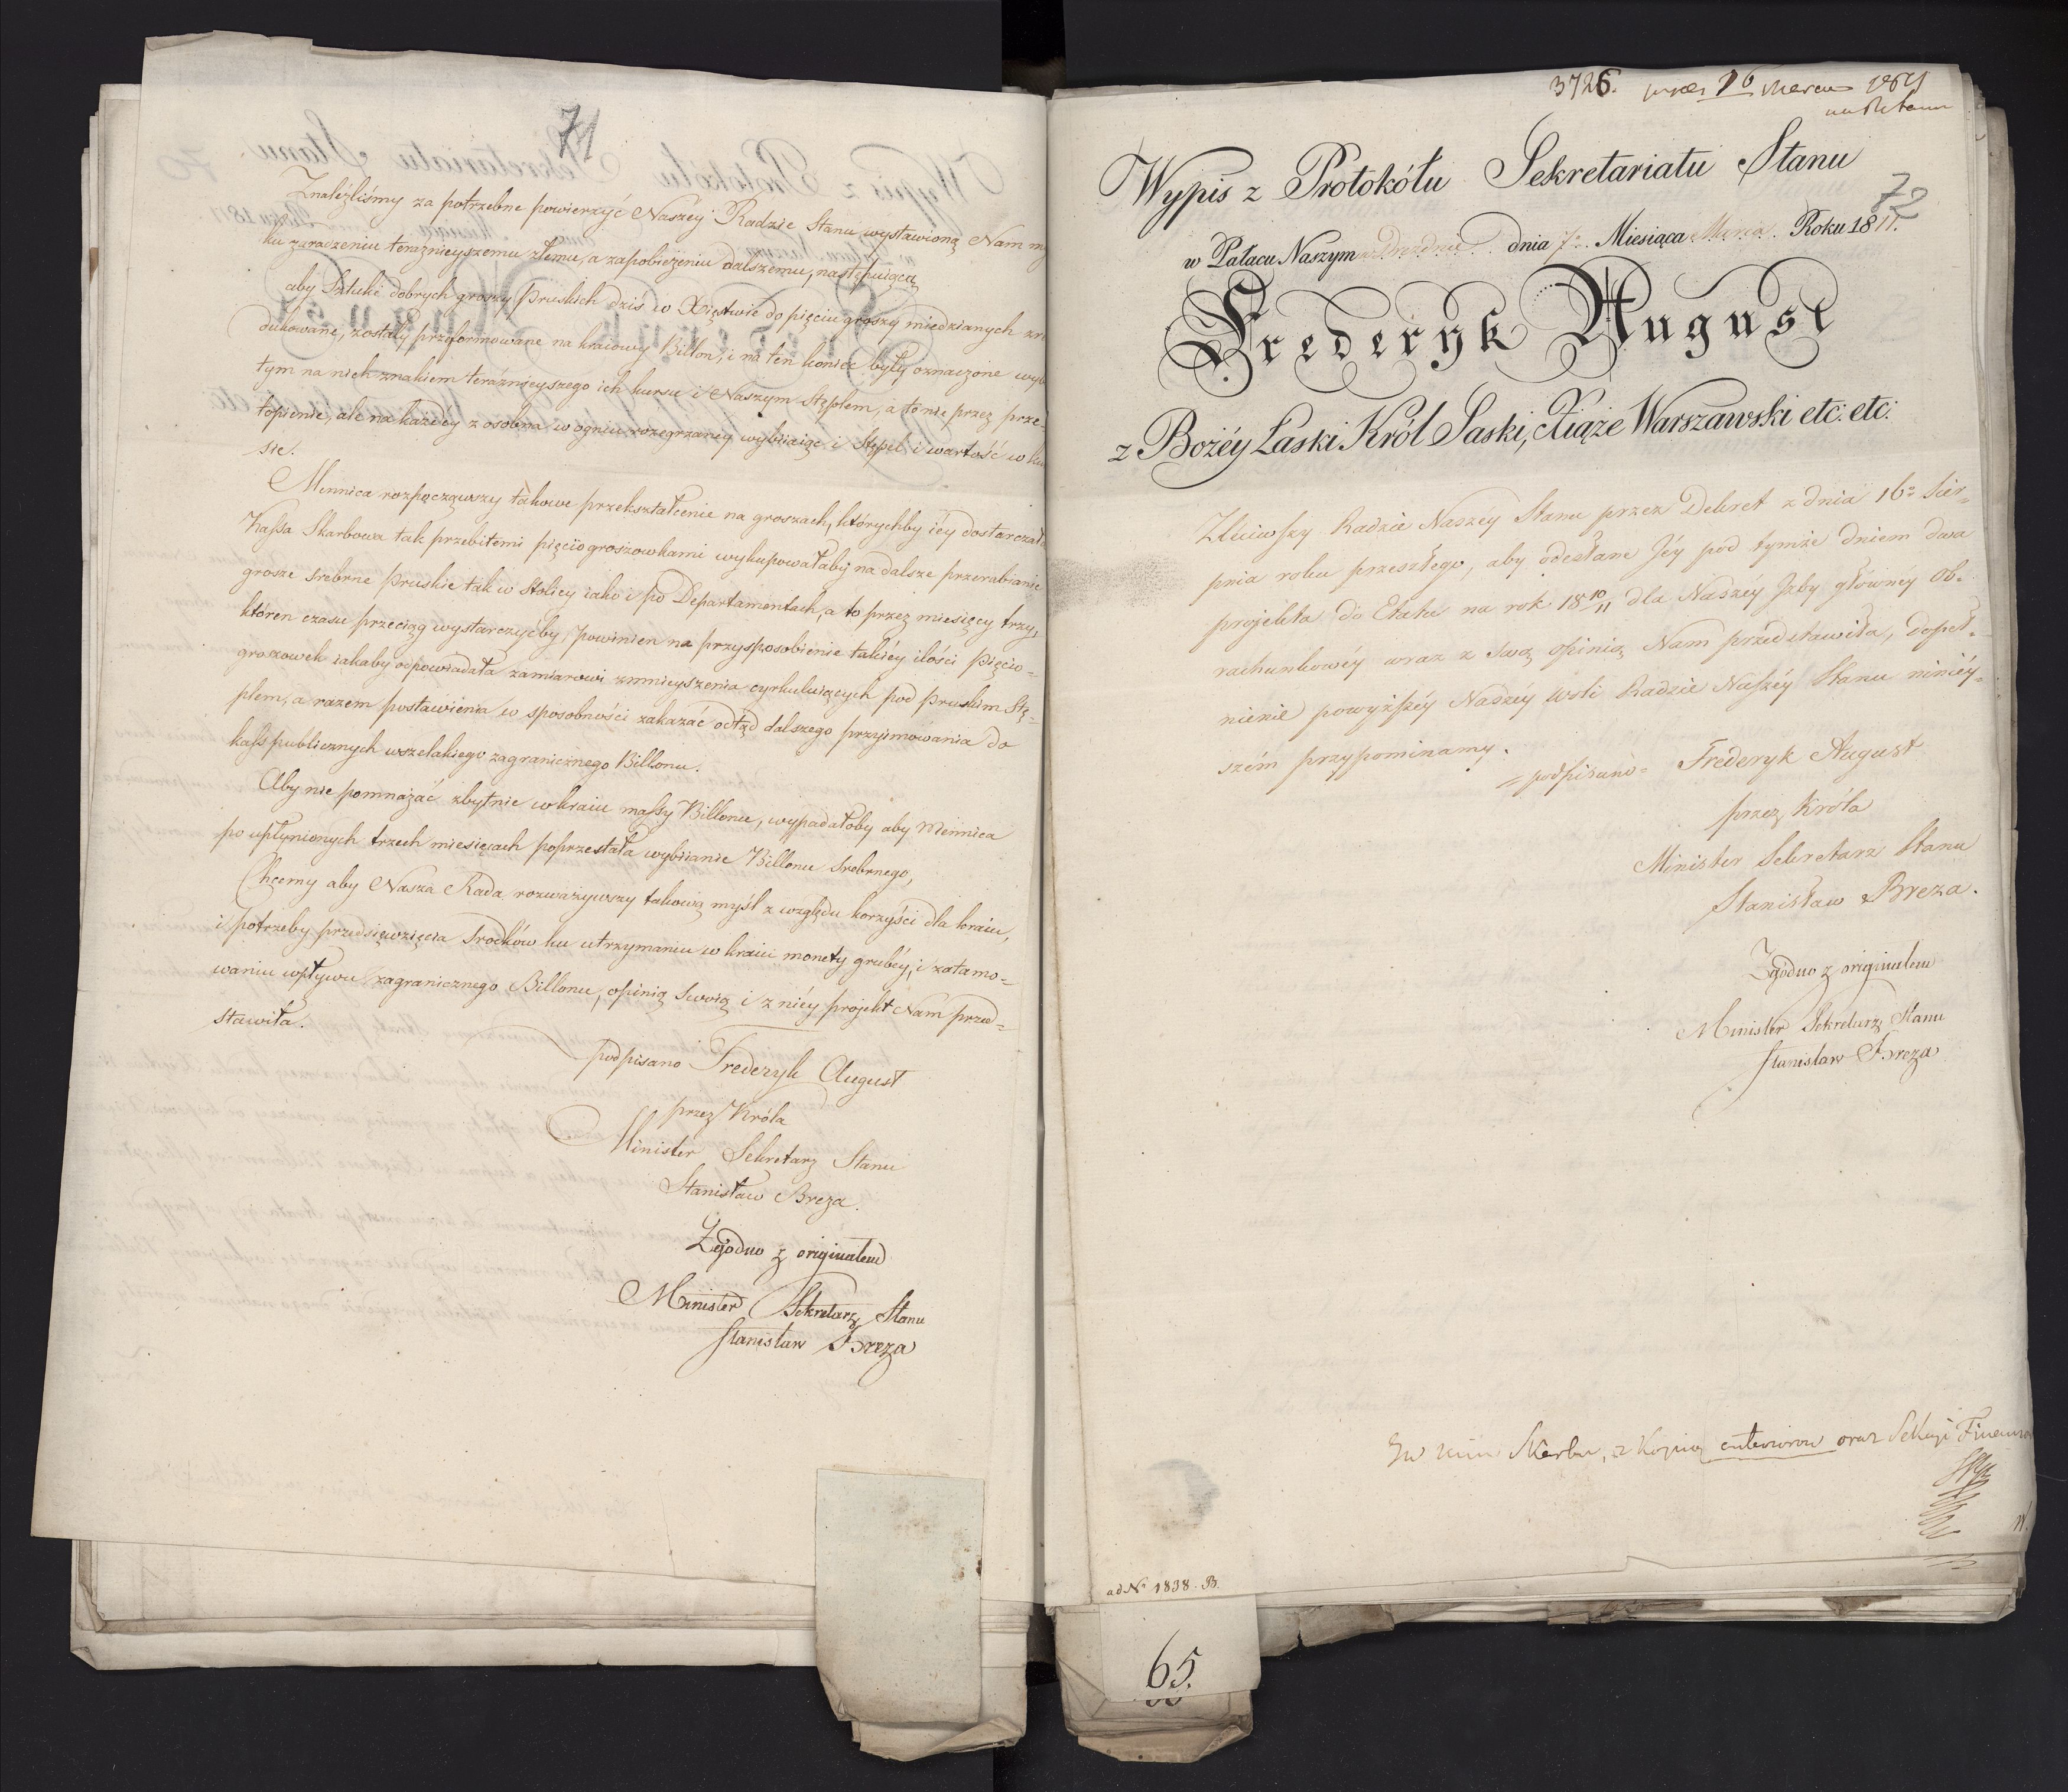 71
Znaleźliśmy za potrzebne powierzyć Naszéy Radzie Stanu wystawioną Nam my
ku zaradzeniu teraznieyszemu złemu, a zapobieżeniu dalszemu, następuiącą
aby Sztuki dobrych groszy Pruskich dziś w Xięstwie do pięciu groszy miedzianych zre
dukowane, zostały przeformowane na kraiowy Billon, i na ten koniec były oznaczone wybi
tym na nich znakiem teraźnieyszego ich kursu i Naszym Stęplem, a to nie przez prze-
topienie, ale na każdéy z osobna w ogniu rozegrzanéy wybiiaiąc i Stępel i wartość w kur
sie.
Mennica rozpocząwszy takowe przekształcenie na groszach, którychby iéy dostarczała
Kassa Skarbowa tak przebitemi pięciogroszowkami wykupowałaby na dalsze przerabianie
grosze srebrne Pruskie tak w Stolicy iako i po Departamentach, a to przez miesięcy trzy,
któren czasu przeciąg wystarczyćby powinien na przysposobienie takiéy ilości Pięcio-
groszowek iakaby odpowiadała zamiarowi zmnieyszenia cyrkuluiących pod Pruskim Stę-
plem, a razem postawienia w sposobności zakazać odtąd dalszego przyimowania do
kass publicznych wszelakiego zagranicznego Billonu.
Aby nie pomnażać zbytnie w kraiu massy Billonu, wypadałoby aby Mennica
po upłynionych trzech miesięcach poprzestała wybiianie Billonu Srebrnego,
Chcemy aby Nasza Rada rozważywszy takową myśl z względu korzyści dla kraiu,
i potrzeby przedsięwzięcia Srodków ku utrzymaniu w kraiu monety grubéy, i zatamo-
waniu wpływu zagranicznego Billonu, opinią Swoią i z niéy projekt Nam przed-
stawiła.
podpisano Frederyk August
przez Króla
Minister Sekretarz Stanu
Stanisław Breza.
Zgodno z originałem
Minister Sekretarz Stanu
Stanisław Breza
3726. 16 Marca 1811
Wypis z Protokółu Sekretariatu Stanu
72
w Pałacu Naszym w Dreźnie dnia 7. Miesiąca Marca Roku 1811.
Frederyk August
z Bożéy Łaski Król Saski, Xiąże Warszawski etc: etc:
Zleciwszy Radzie Naszéy Stanu przez Dekret z dnia 16o Sier-
pnia roku przeszłego, aby odesłane Jéy pod tymże dniem dwa
projekta do Etatu na rok 18 10/11 dla Naszéy Izby głównéy Ob-
rachunkowéy wraz z swą opinią Nam przedstawiła, dopeł-
nienie powyższéy Naszéy woli Radzie Naszéy Stanu niniéy-
szém przypominamy.
= podpisano = Frederyk August
przez Króla
Minister Sekretarz Stanu
Stanisław Breza.
Zgodno z originałem
Minister Sekretarz Stanu
Stanisław Breza
Skarbu, z kopią oraz Sekcyi
ad No 1838. B.
65.